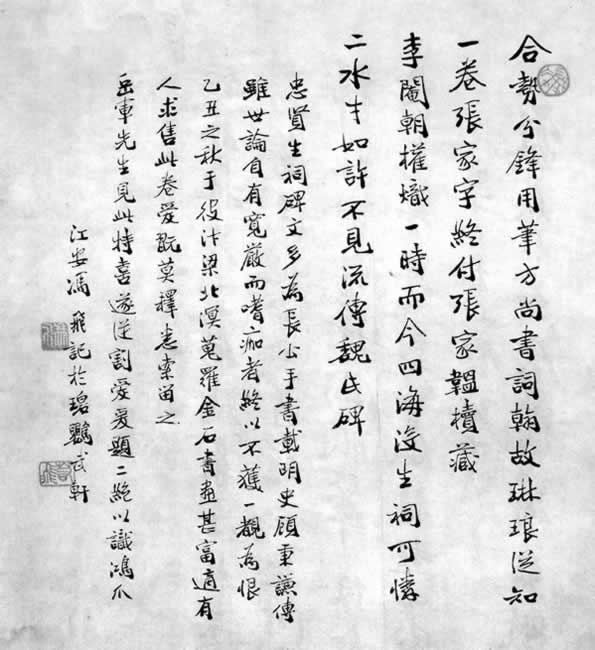 合勢分鋒用筆方尚書詞翰故琳琅從知
一卷張家字終付張家韞櫝藏
李閹朝權熾一時而今四海沒生祠可憐
二水才如許不見流傳魏氏碑
忠賢生祠碑文多為長公手書載明史顧秉謙傳
雖世論自有寬嚴而嗜痂者終以不獲一覩為恨
乙丑之秋于役汴梁北溟蒐羅金石書畫甚富適有
人求售此卷愛翫莫釋悉索留之
岳軍先生見此特喜遂從割愛爰題二絕以識鴻爪
江安馮飛記於鸚武軒